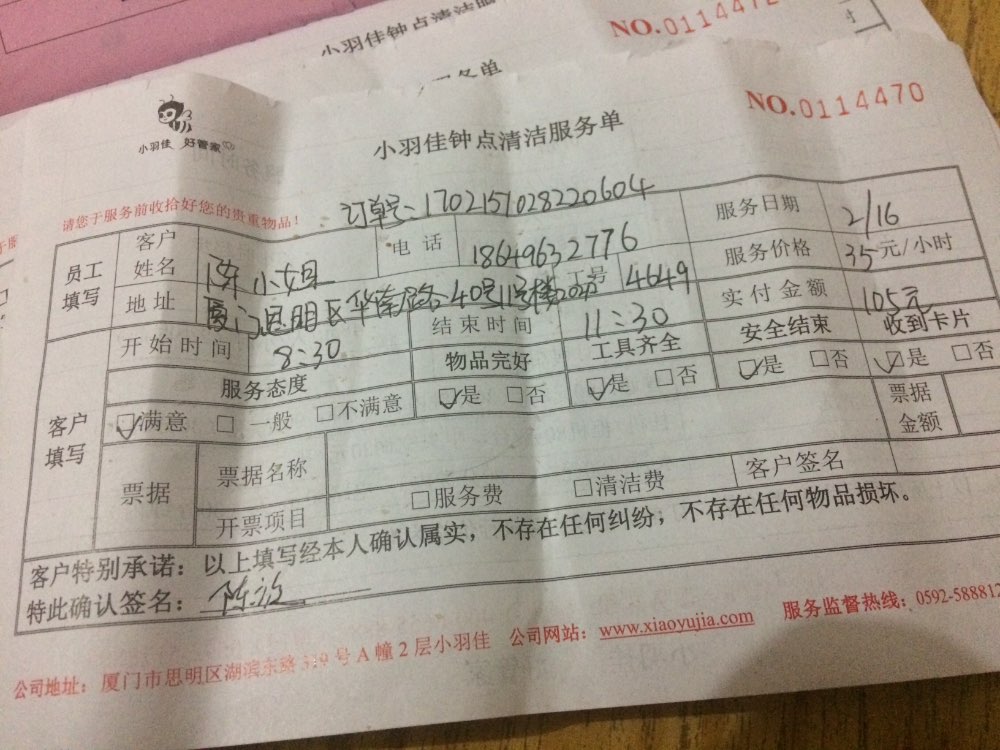 小羽佳钟点清洁服
NO.0114472
务单
NO.0114470
小羽佳 好管家
小羽佳钟点清洁服务单
请您于服务前收拾好您的贵重物品！
订单号：1702151028220604
员工填写 客户姓名 陈小姐 电话 18649632776 服务日期 2/16
地址 厦门思明区华南路40号11号楼 工号 4649 服务价格 35元/小时
开始时间 8:30 结束时间 11:30 实付金额 105元
客户填写 服务态度 物品完好 工具齐全 安全结束 收到卡片
☑满意 □一般 □不满意 ☑是 □否 ☑是 □否 ☑是 □否 ☑是 □否
票据 票据名称 票据金额
开票项目 □服务费 □清洁费 客户签名
客户特别承诺：以上填写经本人确认属实，不存在任何纠纷，不存在任何物品损坏。
特此确认签名：陈
公司地址：厦门市思明区湖滨东路 号A幢2层小羽佳 公司网站：www.xiaoyujia.com 服务监督热线：0592-588812